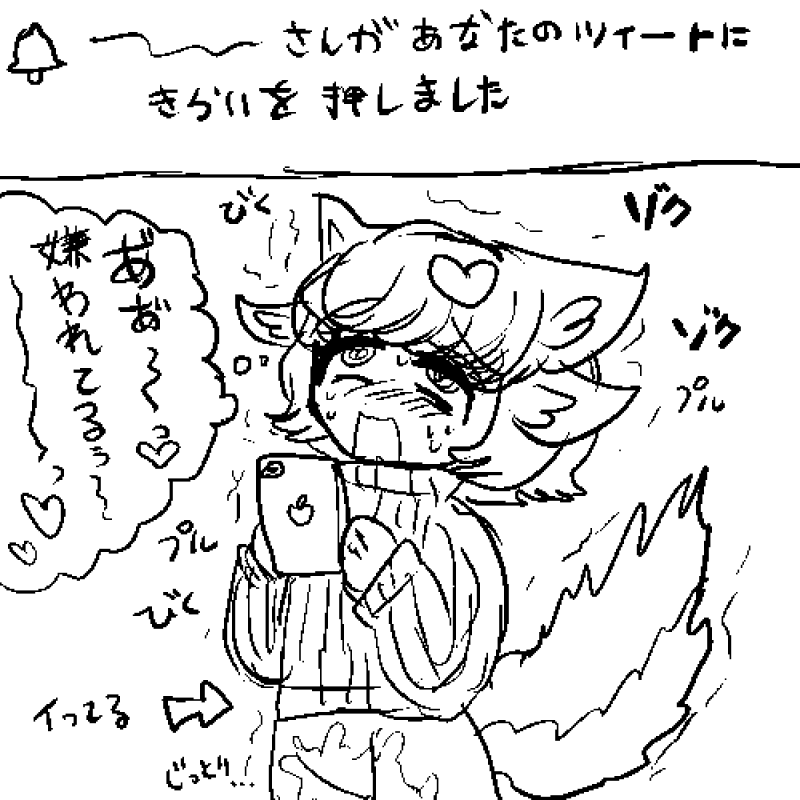 さんがあなたのツイートに
きらいを押しました
あぁ〜〜っ♡
嫌われてるぅ〜〜っ♡♡
びく
ゾク
ゾク
プル
プル
びく
イってる
じっとり…